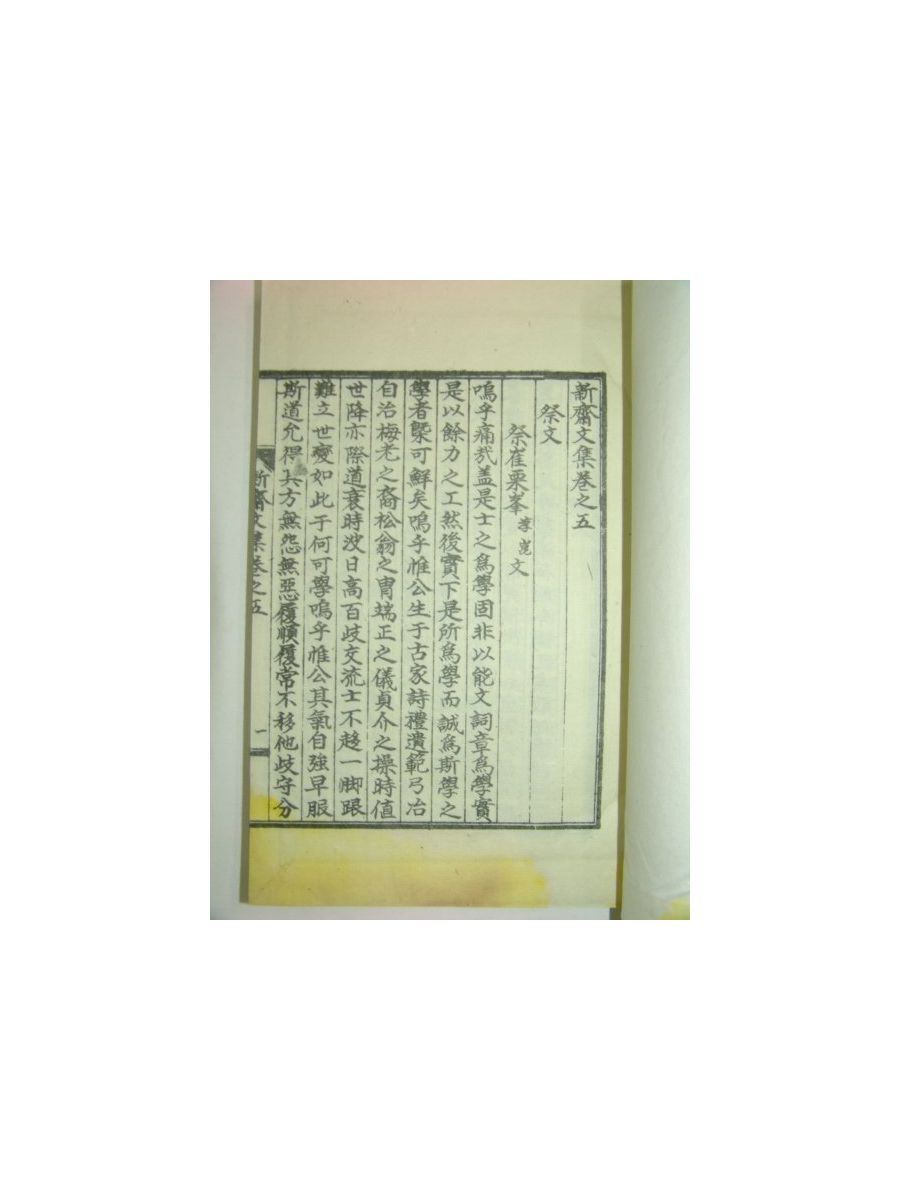 新齋文集卷之五
祭文
祭崔栗峯孝崑文
嗚乎痛哉盖是士之爲學固非以能文詞章爲學實
是以餘力之工然後實下是所爲學而誠爲斯學之
學者槩可鮮矣嗚乎惟公生于古家詩禮遺範弓冶
自治梅老之裔松翁之胄端正之儀貞介之操時值
世降亦際道衰時波日高百歧交流士不趍一脚跟
難立世變如此于何可學嗚乎惟公其氣自強早服
斯道允得其方無怨無惡履順履常不移他歧守分
新齋文集卷之五 一